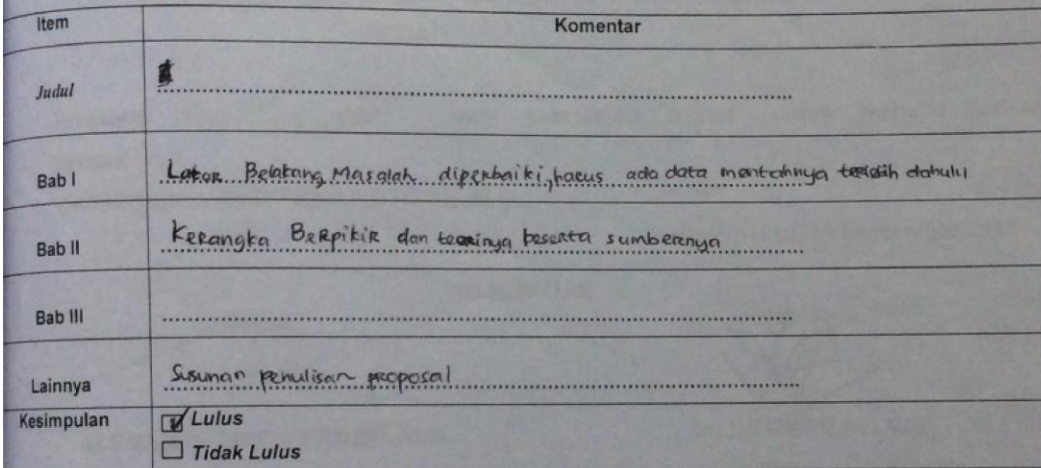 Item Komentar
Judul
Bab I Latar Belakang Masalah diperbaiki, harus ada data mentahnya terlebih dahulu
Bab II Kerangka Berpikir dan teorinya beserta sumbernya
Bab III
Lainnya Susunan penulisan proposal
Kesimpulan Lulus
Tidak Lulus